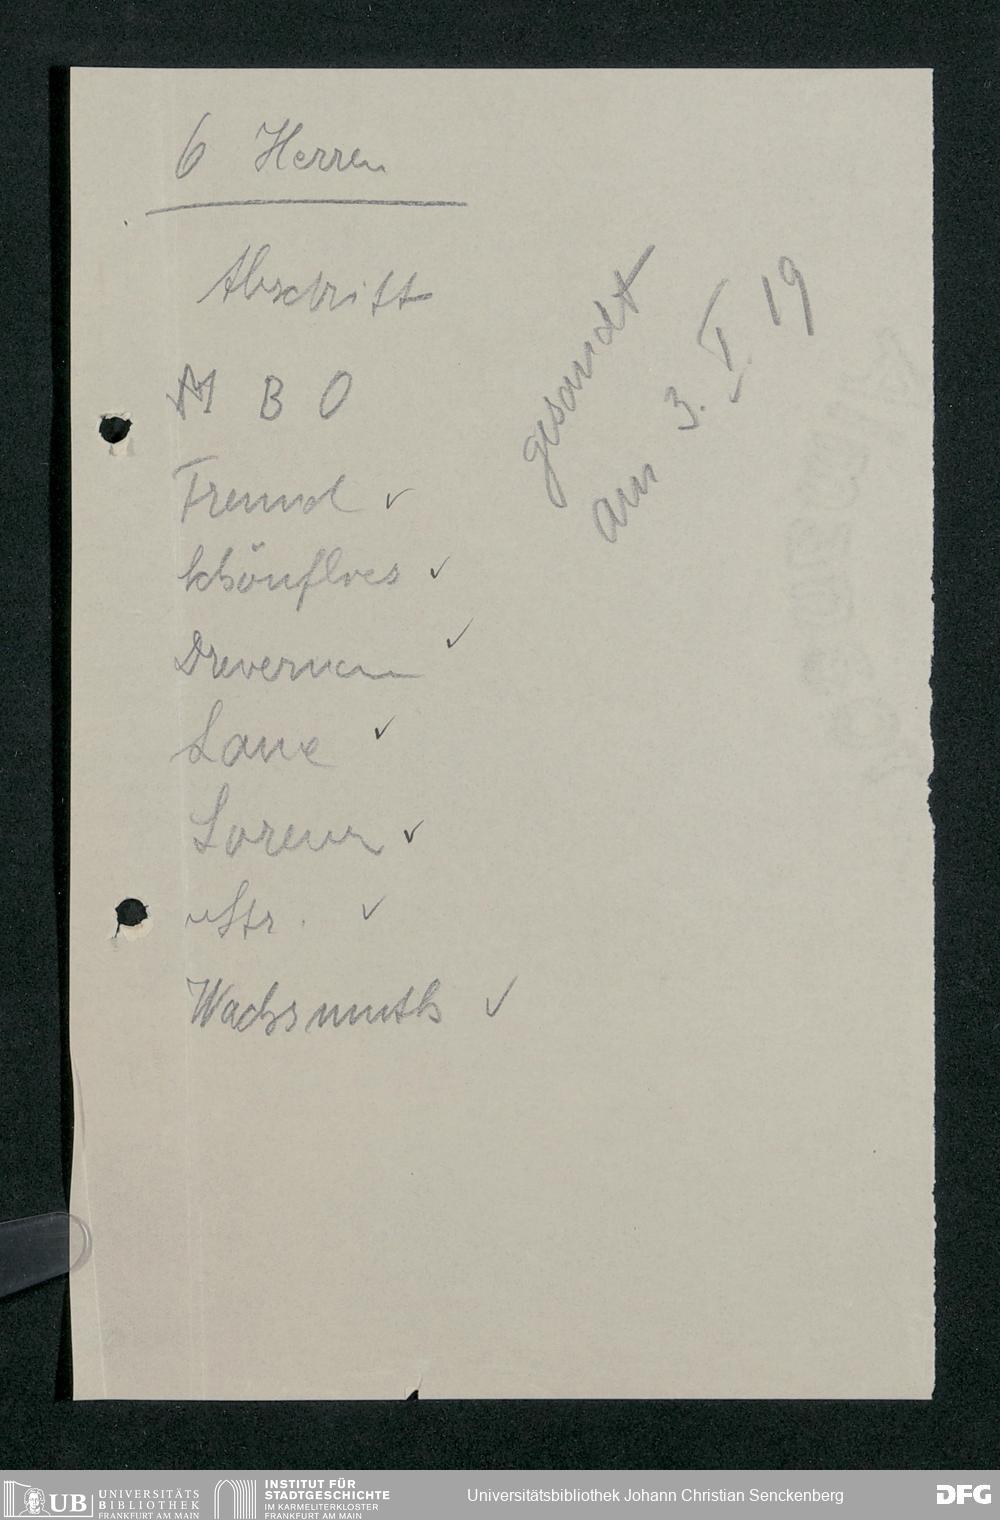 6 Herren
Abschrift
M B O
gesandt
am 3. I. 19
Freund ✓
Schönflies ✓
Drevermann ✓
Laue ✓
Lorenz ✓
Str. ✓
Wachsmuth ✓
UB UNIVERSITÄTS
BIBLIOTHEK
FRANKFURT AM MAIN
INSTITUT FÜR
STADTGESCHICHTE
IM KARMELITERKLOSTER
FRANKFURT AM MAIN
Universitätsbibliothek Johann Christian Senckenberg
DFG